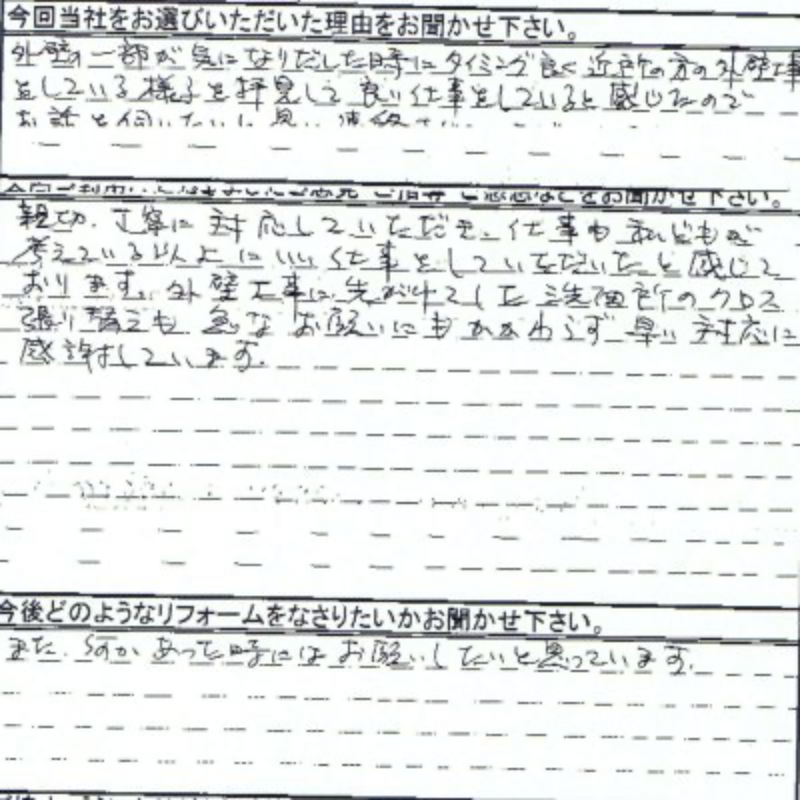 今回当社をお選びいただいた理由をお聞かせ下さい。
外壁の一部が気になりだした時にタイミング良く近所の方の外壁工事
をしている様子を拝見して良い仕事をしていると感じたので
お話を伺いたいと
お聞かせ下さい。
親切、丁寧に対応していただき、仕事も私どもが
考えている以上にいい仕事をしていただいたと感じて
おります。外壁工事に先がけてした洗面所のクロス
張り替えも急なお願いにもかかわらず早い対応に
感謝しています。
今後どのようなリフォームをなさりたいかお聞かせ下さい。
また、何かあった時にはお願いしたいと思っています。